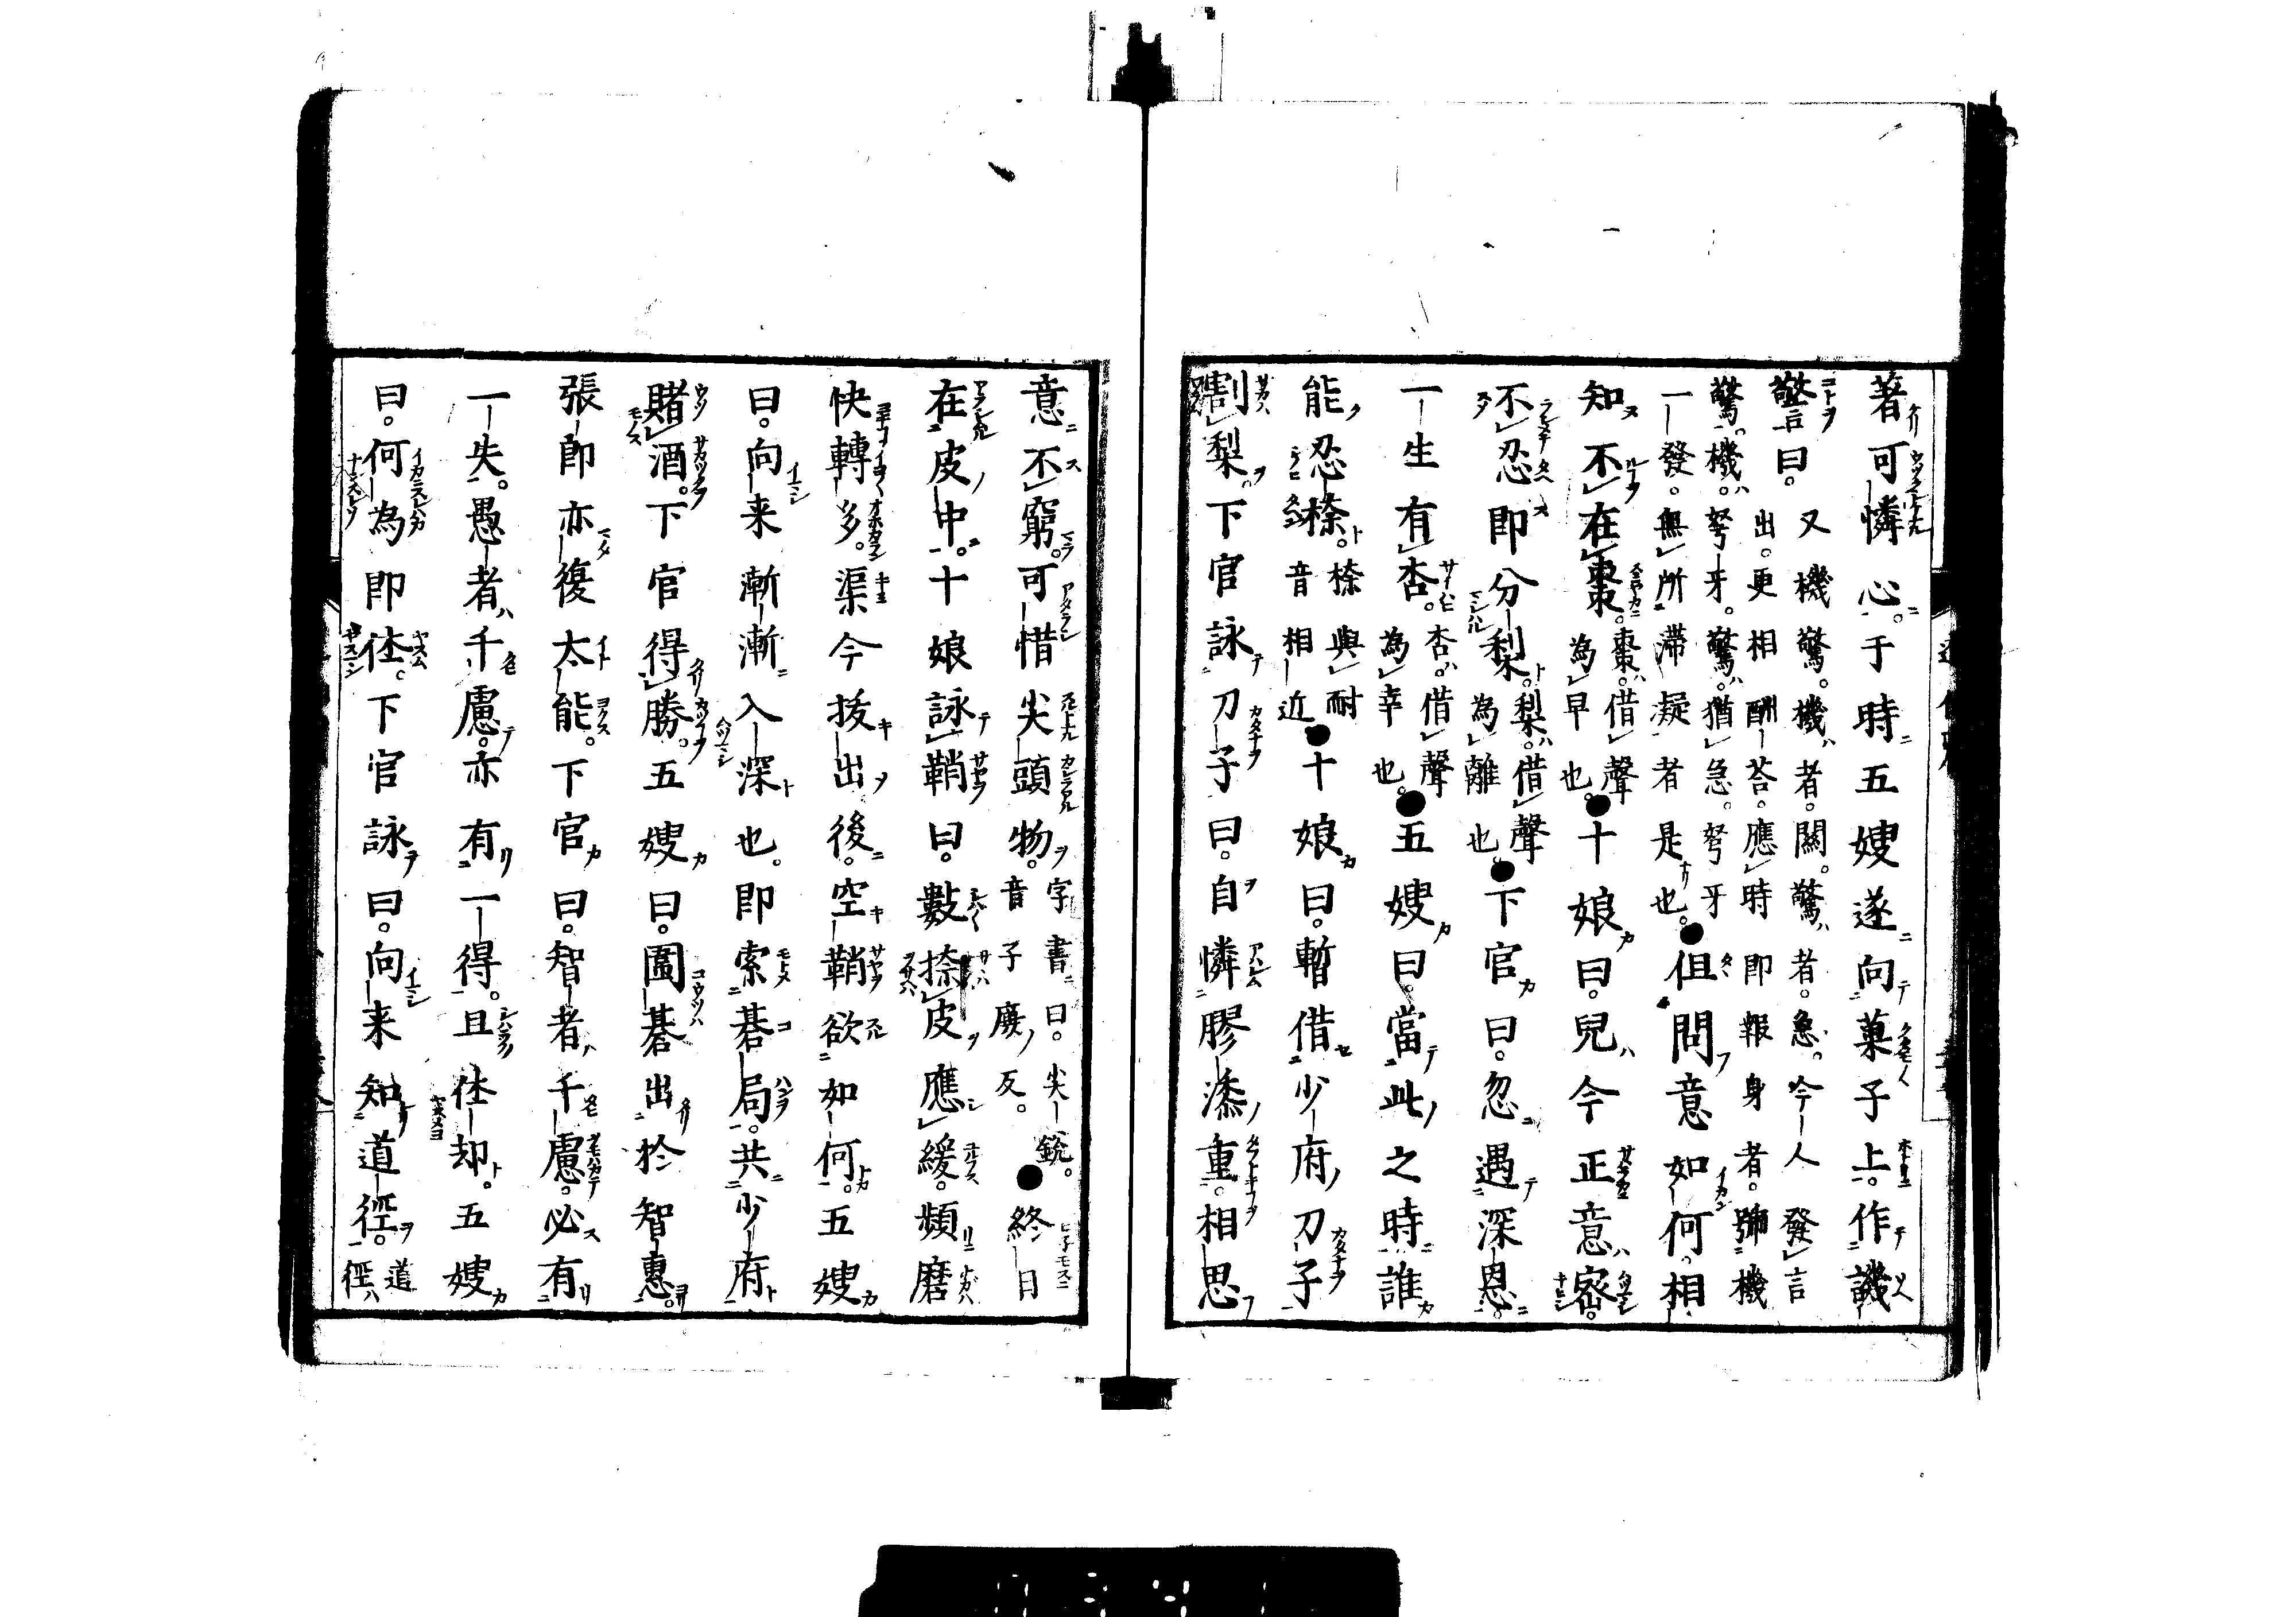 著可憐心。于時五嫂遂向菓子上。作譏
警曰。又機驚。機者。關。驚者。急。今人發言
出。更相酬荅。應時即報身者。號機
驚。機。弩牙。驚猶急。弩牙
一發。無所滯凝者是也。●但問意如何。相
知不在棗。棗借聲為早也。●十娘曰。兒今正意密。
不忍即分梨。梨借聲為離也。●下官曰。忽遇深恩。
一生有杏。杏借聲為幸也。●五嫂曰。當此之時誰
能忍㮈。㮈與耐音相近●十娘曰。暫借少府刀子
割梨。下官詠刀子曰。自憐膠漆重。相思
意不窮。可惜尖頭物。字書曰。尖銳。音子廉反。●終日
在皮中。十娘詠鞘曰。數捺皮應緩。頻磨
快轉多。渠今拔出後。空鞘欲如何。五嫂
曰。向来漸漸入深也。即索碁局。共少府
賭酒。下官得勝。五嫂曰。圍碁出於智惠。
張郎亦復太能。下官曰。智者千慮。必有
一失。愚者千慮。亦有一得。且住却。五嫂
曰。何為即住。下官詠曰。向来知道徑。道徑